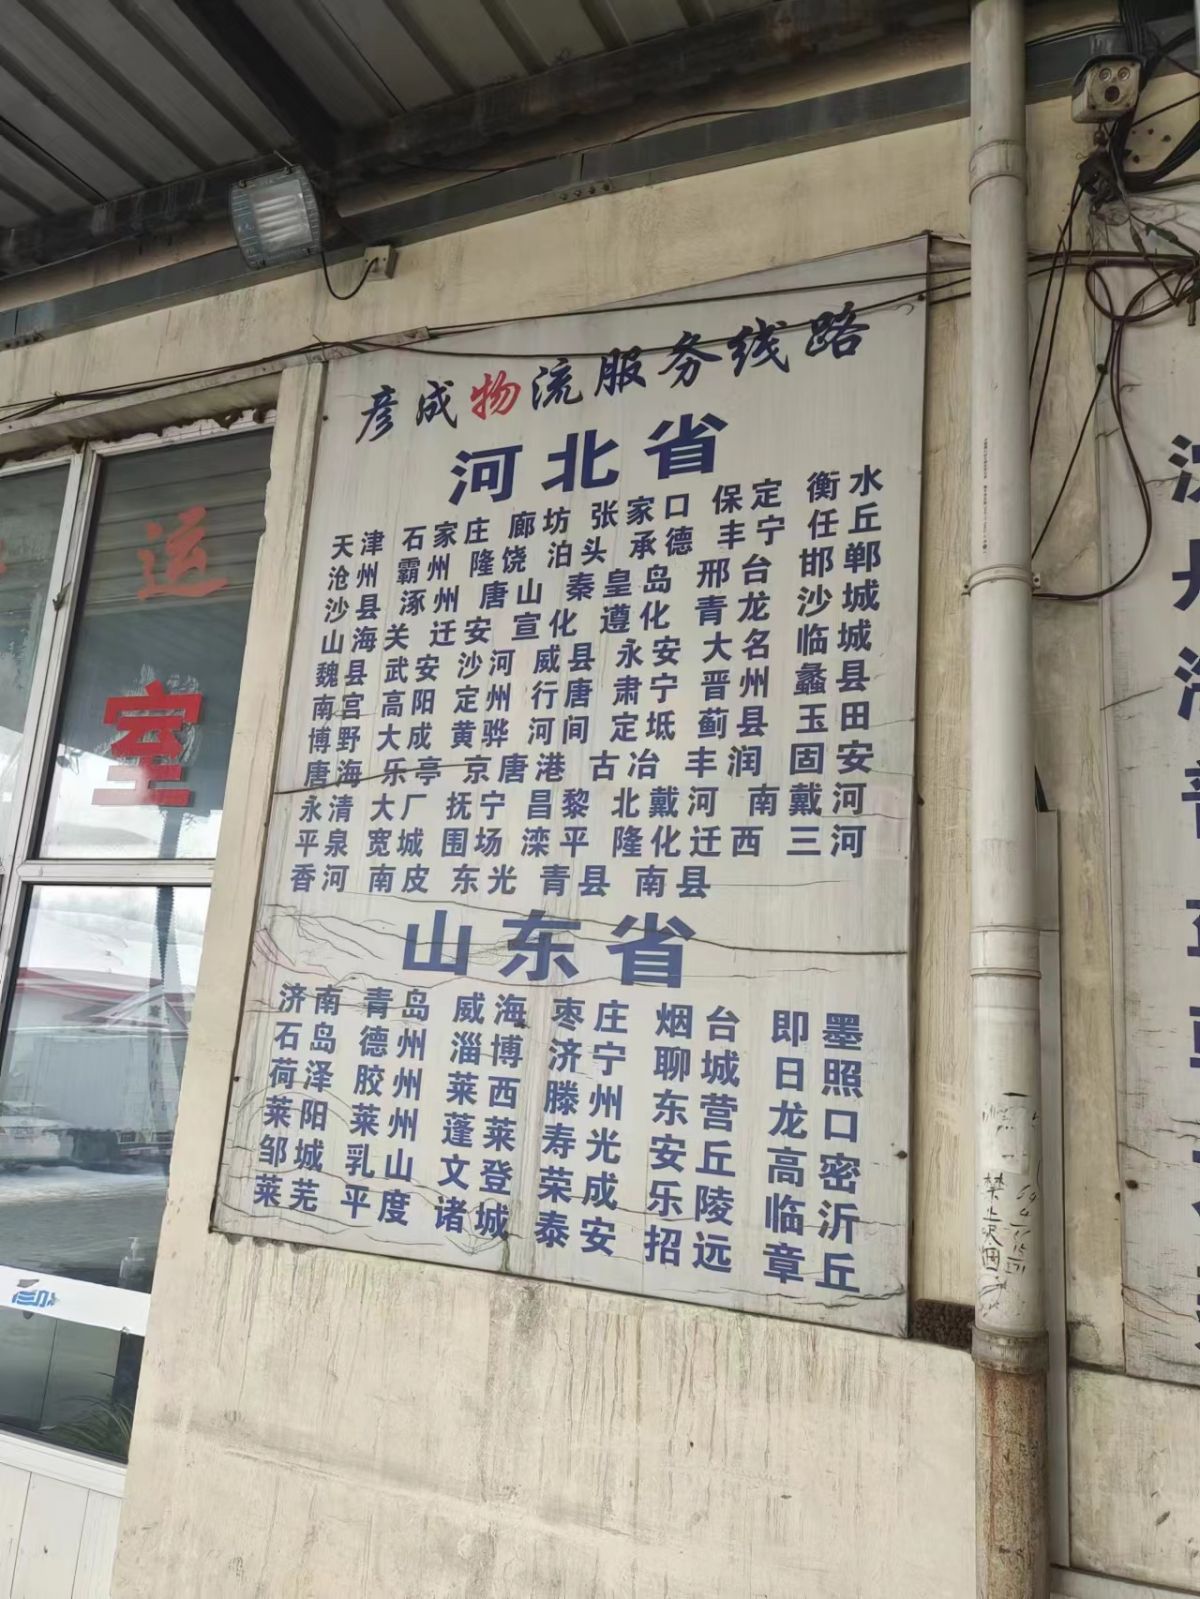 彦成物流服务线路
河北省
天津 石家庄 廊坊 张家口 保定 衡水
沧州 霸州 隆饶 泊头 承德 丰宁 任丘
沙县 涿州 唐山 秦皇岛 邢台 邯郸
山海关 迁安 宣化 遵化 青龙 沙城
魏县 武安 沙河 威县 永安 大名 临城
南宫 高阳 定州 行唐 肃宁 晋州 蠡县
博野 大成 黄骅 河间 定坻 蓟县 玉田
唐海 乐亭 京唐港 古冶 丰润 固安
永清 大厂 抚宁 昌黎 北戴河 南戴河
平泉 宽城 围场 滦平 隆化 迁西 三河
香河 南皮 东光 青县 南县
山东省
济南 青岛 威海 枣庄 烟台 即墨
石岛 德州 淄博 济宁 聊城 日照
荷泽 胶州 莱西 滕州 东营 龙口
莱阳 莱州 蓬莱 寿光 安丘 高密
邹城 乳山 文登 荣成 乐陵 临沂
莱芜 平度 诸城 泰安 招远 章丘
运
室
禁止